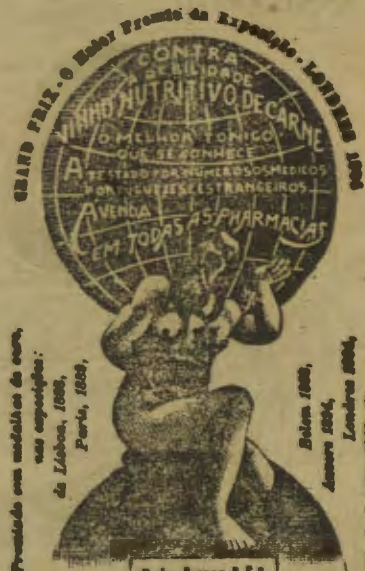 GRAND PRIX - O Maior Premio da Exposição - LONDRES 1904
CONTRA
A DEBILIDADE
VINHO NUTRITIVO DE CARNE
O MELHOR TONICO
QUE SE CONHECE
ATESTADO POR NUMEROSOS MEDICOS
PORTUGUEZES E ESTRANGEIROS
AVENDA
EM TODAS AS PHARMACIAS
Premiado com medalhas de ouro,
nas exposições:
de Lisboa, 1888,
Paris, 1889,
1894,
Londres 1904,